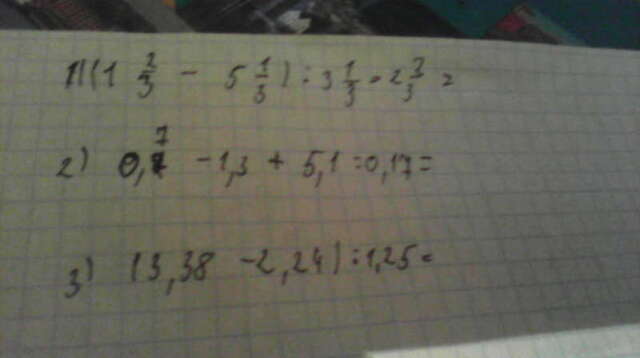 1) (1 2/3 - 5 1/3) : 3 1/3 · 2 3/3 =
2) 0,7 - 1,3 + 5,1 : 0,17 =
3) (3,38 - 2,24) : 1,25 =